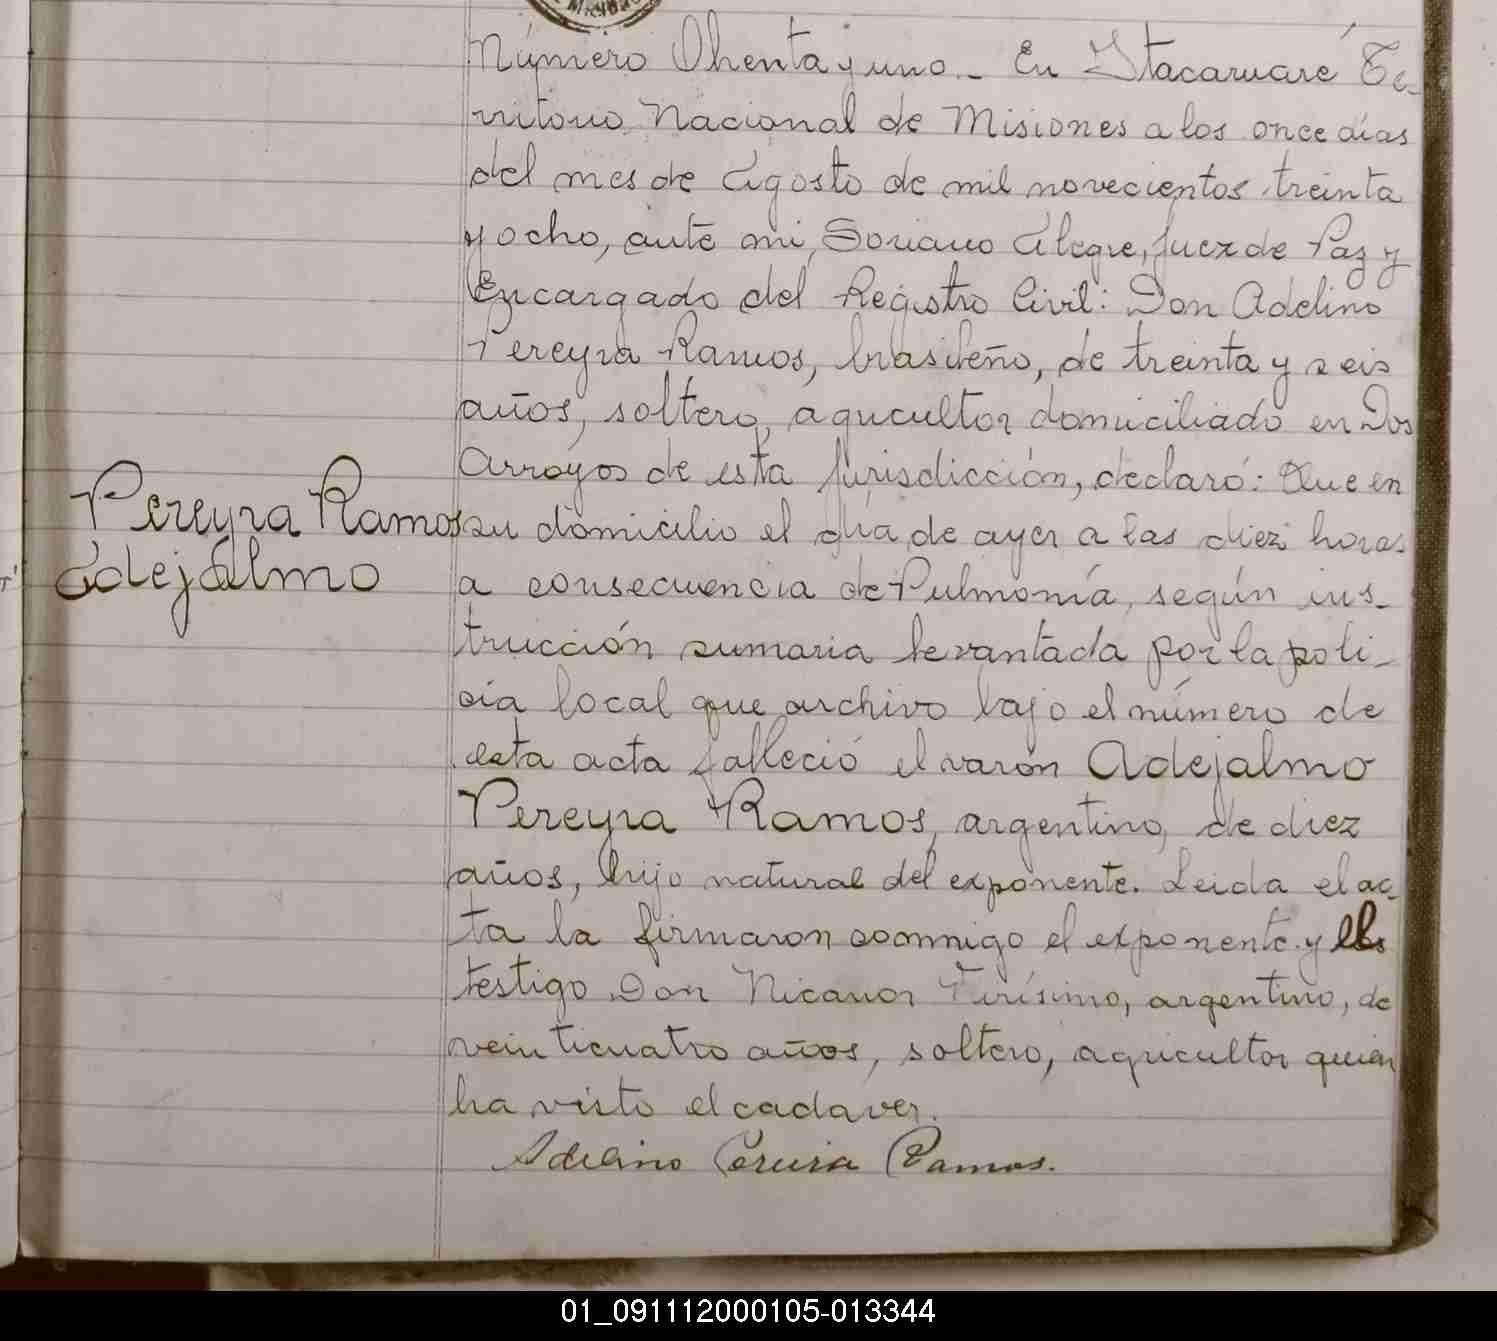 Número Ohenta y uno.- En Itacaruaré Te-
rritorio Nacional de Misiones a los once días
del mes de Agosto de mil novecientos treinta
y ocho, ante mi, Soriano Alegre, Juez de Paz y
Encargado del Registro Civil: Don Adelino
Pereyra Ramos, brasileño, de treinta y seis
años, soltero, agricultor domiciliado en Dos
Arroyos de esta jurisdicción, declaró: Que en
Pereyra Ramos
Adejálmo
su domicilio el día de ayer a las diez horas
a consecuencia de Pulmonía, según ins-
trucción sumaria levantada por la poli-
cia local que archivo bajo el número de
esta acta falleció el varón Adejalmo
Pereyra Ramos, argentino, de diez
años, hijo natural del exponente. Leida el ac-
ta la firmaron conmigo el exponente y el
testigo Don Nicanor Virísimo, argentino, de
veinticuatro años, soltero, agricultor quien
ha visto el cadaver.
Adelino Pereira Ramos.
01_091112000105-013344